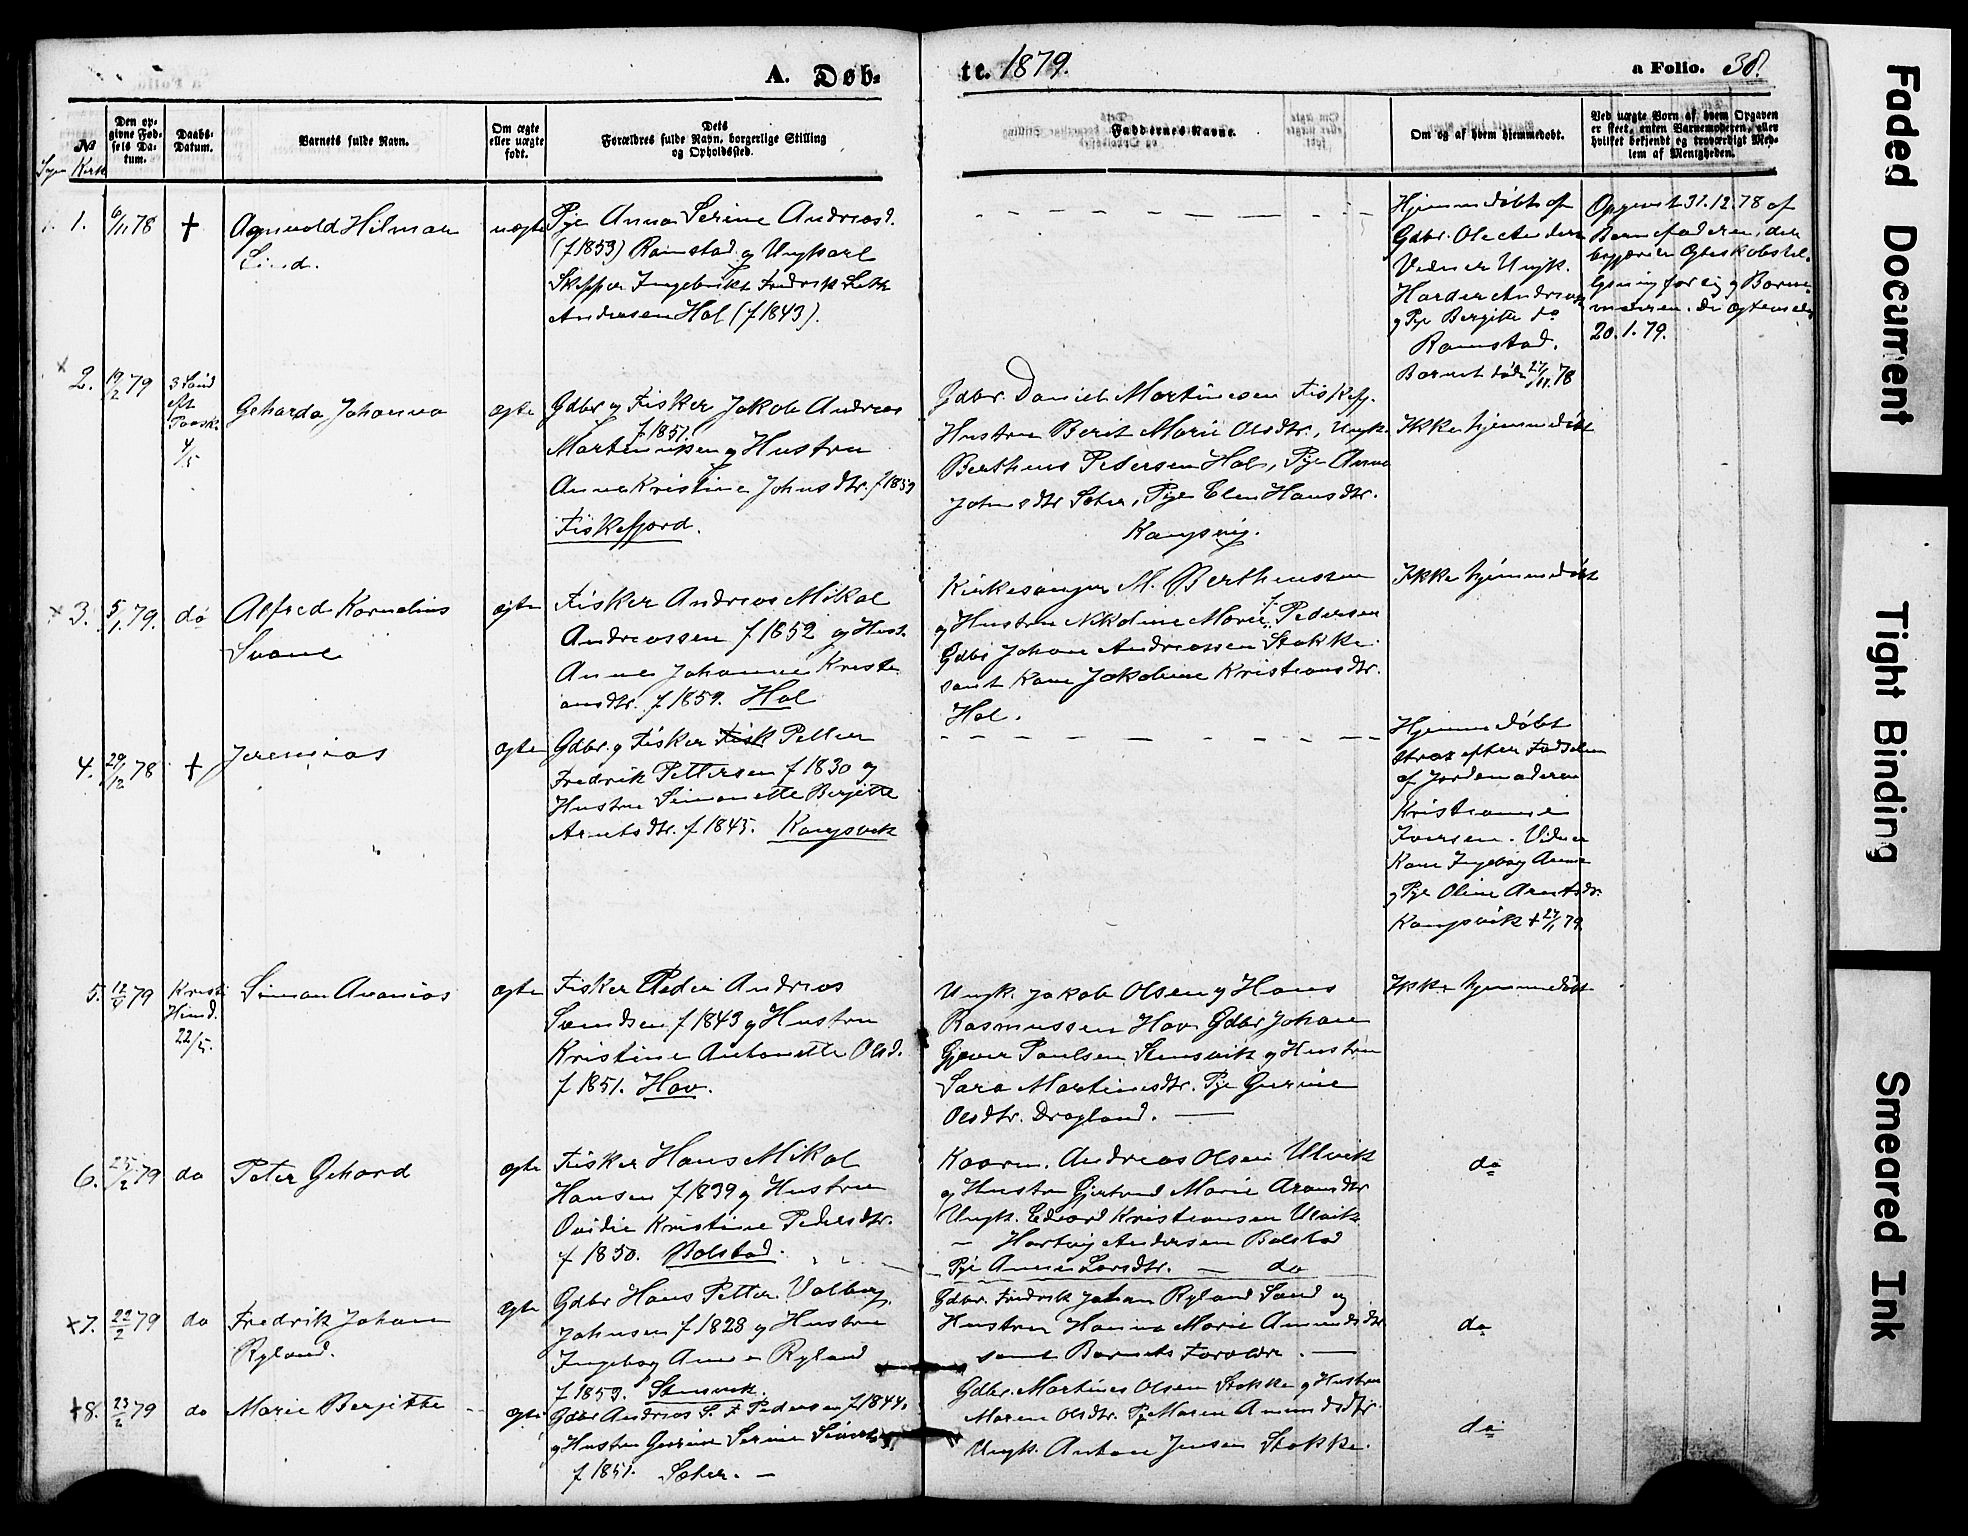 A. Døb-
te. 1879.
a Folio. 38.
No
Kirk
Den op-
givne Fød-
sels Da-
tum.
Daabs-
Datum.
Barnets fulde Navn.
Om ægte
eller uægte
født.
Dets
Forældres fulde Navn, borgerlige Stilling
og Opholdssted.
Faddernes Navne.
Om og af hvem hjemmedøbt.
Ved uægte Born af hvem Opgaven
er skeet, enten Barnemoderen, eller
hvilket bekjendt og troværdigt Med-
lem af Menigheden.
1. 6/11 78 † Agnvald Hilmar
Lind.
uægte
Pige Anna Serine Andreasd.
(f 1853) Ramstad og Ungkarl
Skipper Ingebrikt Fredrik
Andersen Hol (f 1843).
Hjemmedøbt af
Gdbr. Ole Anders
Vidner Ungk.
Harder Andreas
og Pige Bergitte do
Ramstad.
Barnet døde 27/11 78
Opgivet 31.12.78 af
Barnefaderen, der
begjærer Ægteskabstil-
lysning for sig og Barne-
moderen. De ægteviedes
20.1.79.
2. 19/2 79
3 Sønd
eft
Paaske
4/5
Geharda Johanna
ægte
Gdbr og Fisker Jakob Andreas
f 1851.
Martinussen og Hustru
Anna Kristine Johnsdtr. f 1859
Fiskefjord.
Gdbr. Daniel Martinesen Fiskefj.
Hustru Berit Marie Olsdtr., Ungk.
Bertheus Pedersen Hol, Pige Anne
Johnsdtr Sæter, Pige Elen Hansdtr.
Kangsvig.
Ikke hjemmedøbt
3. 5/1 79. do Alfred Kornelius
Svane
ægte
Fisker Andreas Mikal
Andreassen f 1852 og Hust.
Anna Johanna Kristi
ansdtr. f 1859. Hol
Kirkesanger M. Bertheussen
og Hustru Nikoline Marie f. Pedersen
Gdbr Johan Andreassen Stokke
samt Kone Jakobine Kristiansdtr.
Hol.
Ikke hjemmedøbt
4. 29/12 78 † Jeremias
ægte
Gdbr. og Fisker Fisk Petter
Fredrik Pettersen f 1830 og
Hustru Simonette Berjitte
Arntsdtr. f 1845. Kangsvik
Hjemmedøbt
strax efter Fødselen
af Jordemoderen
Kristianna
Iversen. Vidner
Kone Ingeborg Anna
og Pige Oline Arntsdr.
Kangsvik † 27/1 79
5. 12/4 79
Kristi
Himd.
22/5.
Simon Ananias
ægte
Fisker Peder Andreas
Svendsen f 1843 og Hustru
Kristine Antonette Olsd.
f 1851. Hov.
Ungk. Jakob Olsen og Hans
Rasmussen Hov Gdbr Johan
Gjæver Paulsen Stensvik og Hustru
Sara Martinsdtr. Pige Gurine
Olsdtr. Dragland.
Ikke hjemmedøbt
6. 25/2 79 do Peter Gehard
ægte
Fisker Hans Mikal
Hansen f 1839 og Hustru
Ovidie Kristine Pedersdtr.
f 1850. Bolstad.
Kaarm. Andreas Olsen Ulvik
og Hustru Gjertrud Marie Aronsdtr
Ungk. Edvard Kristiansen Ulvik
– Hartvig Andersen Bolstad
Pige Anna Larsdtr. – do
do
7. 22/2 79 do Fredrik Johan
Ryland.
ægte
Gdbr Hans Petter Valberg
Johnsen f 1828 og Hustru
Ingeborg Anna Ryland
f 1859. Stensvik.
Gdbr. Fredrik Johan Ryland Sand og
Hustru Hanna Marie Amundsdtr
samt Barnets Forældre.
do
8. 23/2 79 do Marie Berjitte
ægte
Gdbr Andreas S. F Pedersen f 1844.
og Hustru Gurine Serine
f 1851. Sæter.
Gdbr. Martines Olsen Stokke og Hustru
Maren Olsdtr. Pige Maren Amundsdtr
Ungk. Anton Jensen Stokke.
do
Faded Document
Tight Binding
Smeared Ink